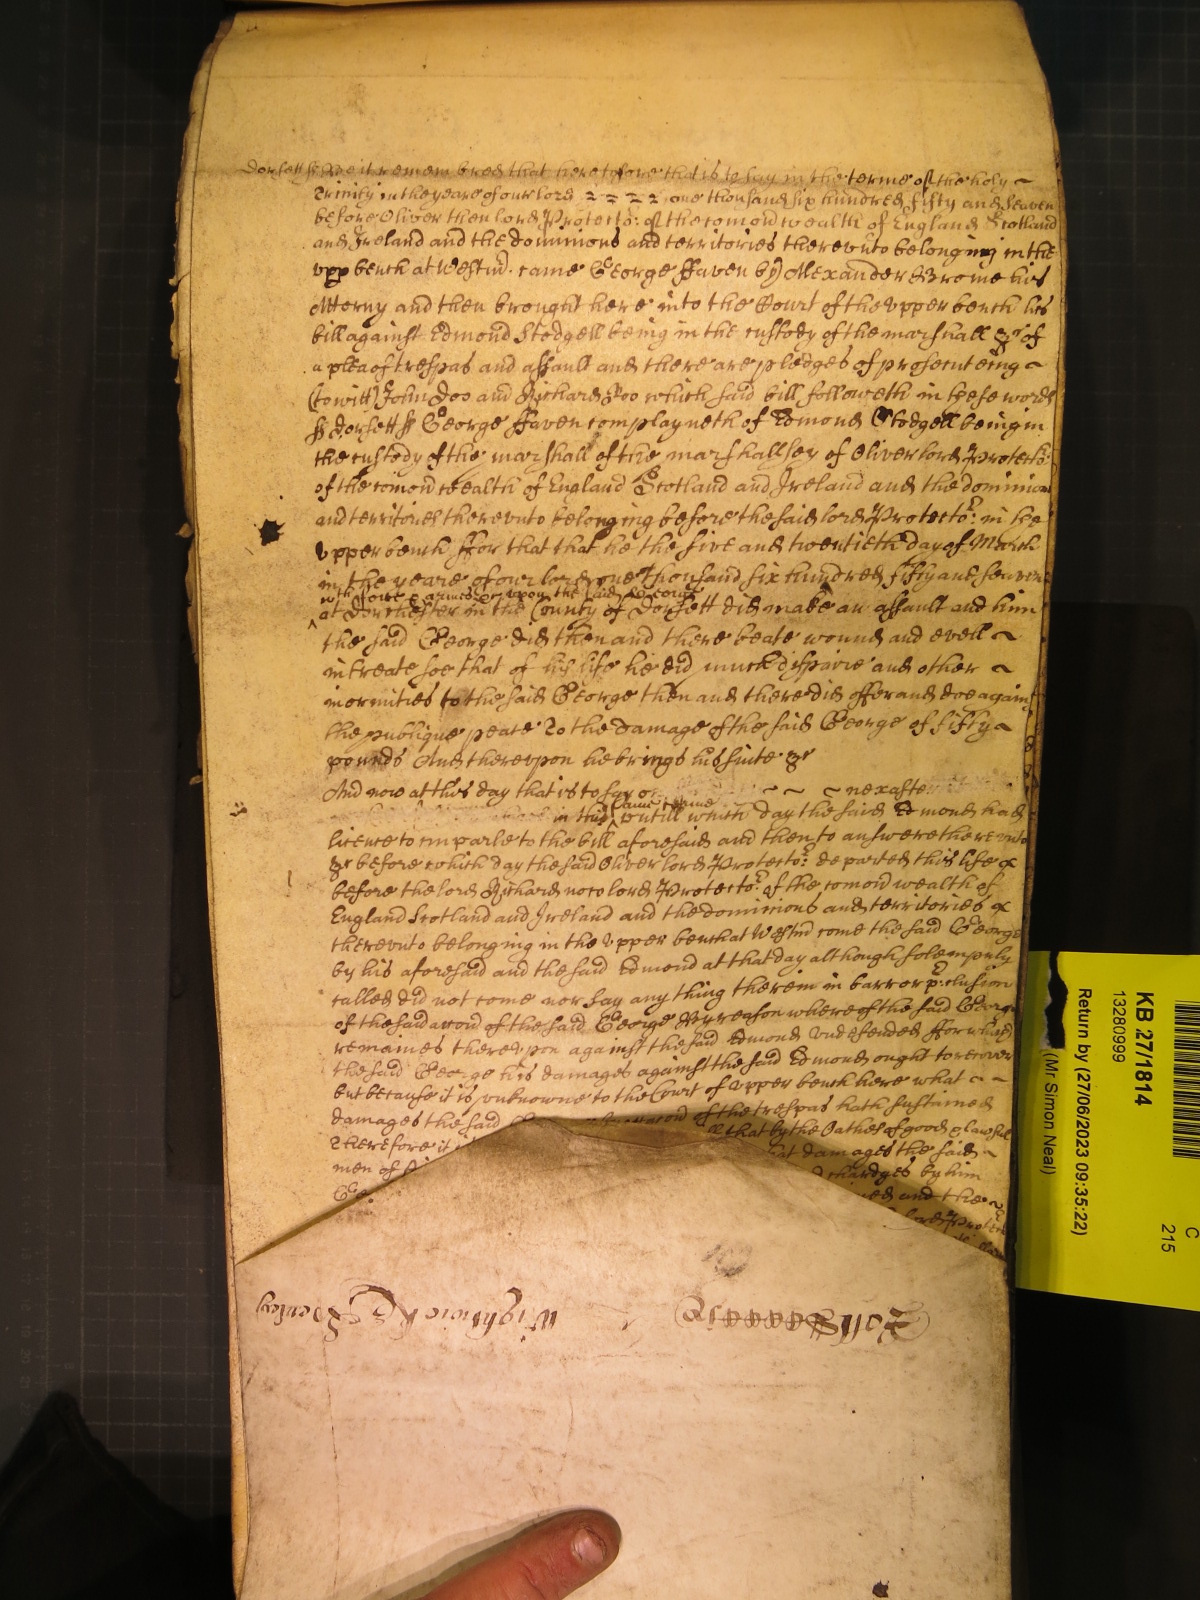 Dorsett ss Be it remembred that heretofore that is to say in the terme of the holy
Trinity in the yeare of our lord one thousand six hundred fifty and seaven
before Oliver then lord Protector: of the comon wealth of England Scotland
and Ireland and the dominions and territories therevnto belonging in the
vpp bench at Westm. came George Haven by Alexander Brome his
Atterny and then brought here into the Court of the vpper bench his
bill against Edmond Stodgell being in the custody of the marshall &c of
a plea of trespas and assault and there are pledges of prosecuteing
(to witt) John Doo and Richard Roo which said bill followeth in these words
ss Dorsett ss George Haven complayneth of Edmond Stodgell being in
the custody of the marshall of the marshallsey of Oliver lord Protector:
of the comon wealth of England Scotland and Ireland and the dominions
and territories therevnto belonging before the said lord Protector: in the
vpper bench ffor that that he the five and twentieth day of March
in the yeare of our lord one thousand six hundred fifty and seaven
with force & armes &c upon the said George
at Dorchester in the County of Dorsett did make an assault and him
the said George did then and there beate wound and evell
intreate soe that of his life he did much dispaire and other
inormities to the said George then and there did offer and doe against
the publique peace To the damage of the said George of fifty
pounds And therevpon he brings his suite &c
And now at this day that is to say on next after
in this same terme vntill which day the said Edmond had
licence to imparle to the bill aforesaid and then to answere therevnto
&c before which day the said Oliver lord Protector: departed this life &
before the lord Richard now lord Protector: of the comon wealth of
England Scotland and Ireland and the dominions and territories &
therevnto belonging in the vpper bench at Westm come the said George
by his aforesaid and the said Edmond at that day although solempnly
called did not come nor say any thing therein in barr or p:clusion
of the said accion of the said George By reason whereof the said George
remaines therevpon against the said Edmond vndefended ffor which
the said George his damages against the said Edmond ought to recover
but because it is vnknowne to the Court of vpper bench here what
damages the said of the trespas hath sustained
Therefore it that by the Oathes of good & lawfull
men of damages the said
Ge chardges by him
and the
lord Protector
Roll Wightwick & Henley
KB 27/1814
13280999
Return by (27/06/2023 09:35:22)
(Mr Simon Neal)
C
215